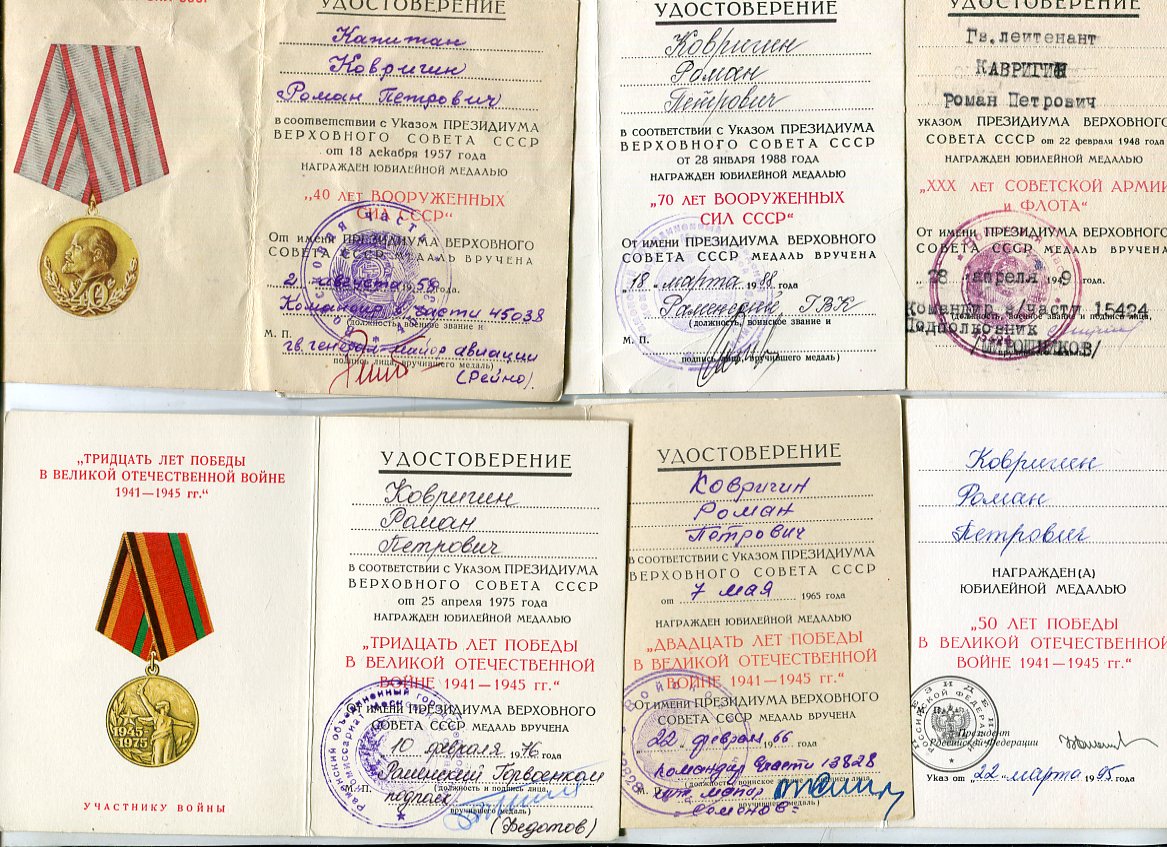 УДОСТОВЕРЕНИЕ
Капитан
Ковригин
Роман Петрович
в соответствии с Указом ПРЕЗИДИУМА
ВЕРХОВНОГО СОВЕТА СССР
от 18 декабря 1957 года
НАГРАЖДЕН ЮБИЛЕЙНОЙ МЕДАЛЬЮ
„40 ЛЕТ ВООРУЖЕННЫХ
СИЛ СССР“
От имени ПРЕЗИДИУМА ВЕРХОВНОГО
СОВЕТА СССР МЕДАЛЬ ВРУЧЕНА
2 августа 1958 года.
Командир в части 45038
(должность, военное звание и
М. П.
гв. генерал-майор авиации
подпись лица, вручившего медаль)
(Рейно).
40
УДОСТОВЕРЕНИЕ
Ковригин
Роман
Петрович
В СООТВЕТСТВИИ с Указом ПРЕЗИДИУМА
ВЕРХОВНОГО СОВЕТА СССР
от 28 января 1988 года
НАГРАЖДЕН ЮБИЛЕЙНОЙ МЕДАЛЬЮ
„70 ЛЕТ ВООРУЖЕННЫХ
СИЛ СССР“
От имени ПРЕЗИДИУМА ВЕРХОВНОГО
СОВЕТА СССР МЕДАЛЬ ВРУЧЕНА
„18“ марта 1988 года
ГВК
(должность, воинское звание и
М. П.
подпись лица, вручившего медаль)
УДОСТОВЕРЕНИЕ
Гв.лейтенант
КАВРИГИН
Роман Петрович
УКАЗОМ ПРЕЗИДИУМА ВЕРХОВНОГО
СОВЕТА СССР от 22 февраля 1948 года
НАГРАЖДЕН ЮБИЛЕЙНОЙ МЕДАЛЬЮ
„XXX ЛЕТ СОВЕТСКОЙ АРМИИ
И ФЛОТА“
От имени ПРЕЗИДИУМА ВЕРХОВНОГО
СОВЕТА СССР МЕДАЛЬ ВРУЧЕНА
„28“ апреля 1949
Командир в/части 15424
(должность, военное звание и подпись лица,
Подполковник
„ТРИДЦАТЬ ЛЕТ ПОБЕДЫ
В ВЕЛИКОЙ ОТЕЧЕСТВЕННОЙ ВОЙНЕ
1941—1945 гг.“
1945
1975
УЧАСТНИКУ ВОЙНЫ
УДОСТОВЕРЕНИЕ
Ковригин
Роман
Петрович
В СООТВЕТСТВИИ с Указом ПРЕЗИДИУМА
ВЕРХОВНОГО СОВЕТА СССР
от 25 апреля 1975 года
НАГРАЖДЕН ЮБИЛЕЙНОЙ МЕДАЛЬЮ
„ТРИДЦАТЬ ЛЕТ ПОБЕДЫ
В ВЕЛИКОЙ ОТЕЧЕСТВЕННОЙ
ВОЙНЕ 1941—1945 гг.“
От имени ПРЕЗИДИУМА ВЕРХОВНОГО
СОВЕТА СССР МЕДАЛЬ ВРУЧЕНА
„10“ февраля 1976 года
Горвоенком
М. П. (должность и подпись лица,
подполк
вручившего медаль)
(Федотов)
УДОСТОВЕРЕНИЕ
Ковригин
Роман
Петрович
В СООТВЕТСТВИИ с Указом ПРЕЗИДИУМА
ВЕРХОВНОГО СОВЕТА СССР
от 7 мая 1965 года
НАГРАЖДЕН ЮБИЛЕЙНОЙ МЕДАЛЬЮ
„ДВАДЦАТЬ ЛЕТ ПОБЕДЫ
В ВЕЛИКОЙ ОТЕЧЕСТВЕННОЙ
ВОЙНЕ 1941—1945 гг.“
От имени ПРЕЗИДИУМА ВЕРХОВНОГО
СОВЕТА СССР МЕДАЛЬ ВРУЧЕНА
„22“ февраля 1966 года
командир части 13828
(должность, воинское звание и подпись лица,
М. П.
вручившего медаль)
Семенов
Ковригин
Роман
Петрович
НАГРАЖДЕН(А)
ЮБИЛЕЙНОЙ МЕДАЛЬЮ
„50 ЛЕТ ПОБЕДЫ
В ВЕЛИКОЙ ОТЕЧЕСТВЕННОЙ
ВОЙНЕ 1941—1945 гг.“
Президент
Российской Федерации
Указ от „22“ марта 1995 года